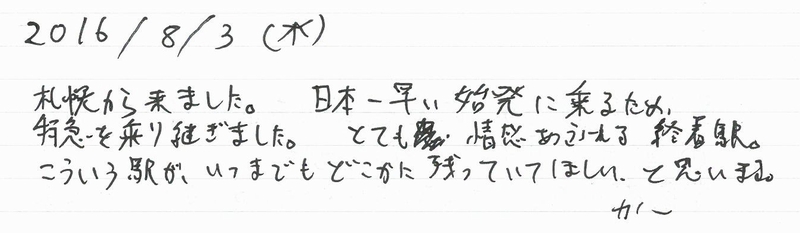 2016/8/3 (水)
札幌から来ました。 日本一早い始発に乗るため、
特急を乗り継ぎました。 とても 情感あふれる 終着駅。
こういう駅が、いつまでもどこかに残っていてほしい、と思います。
カー